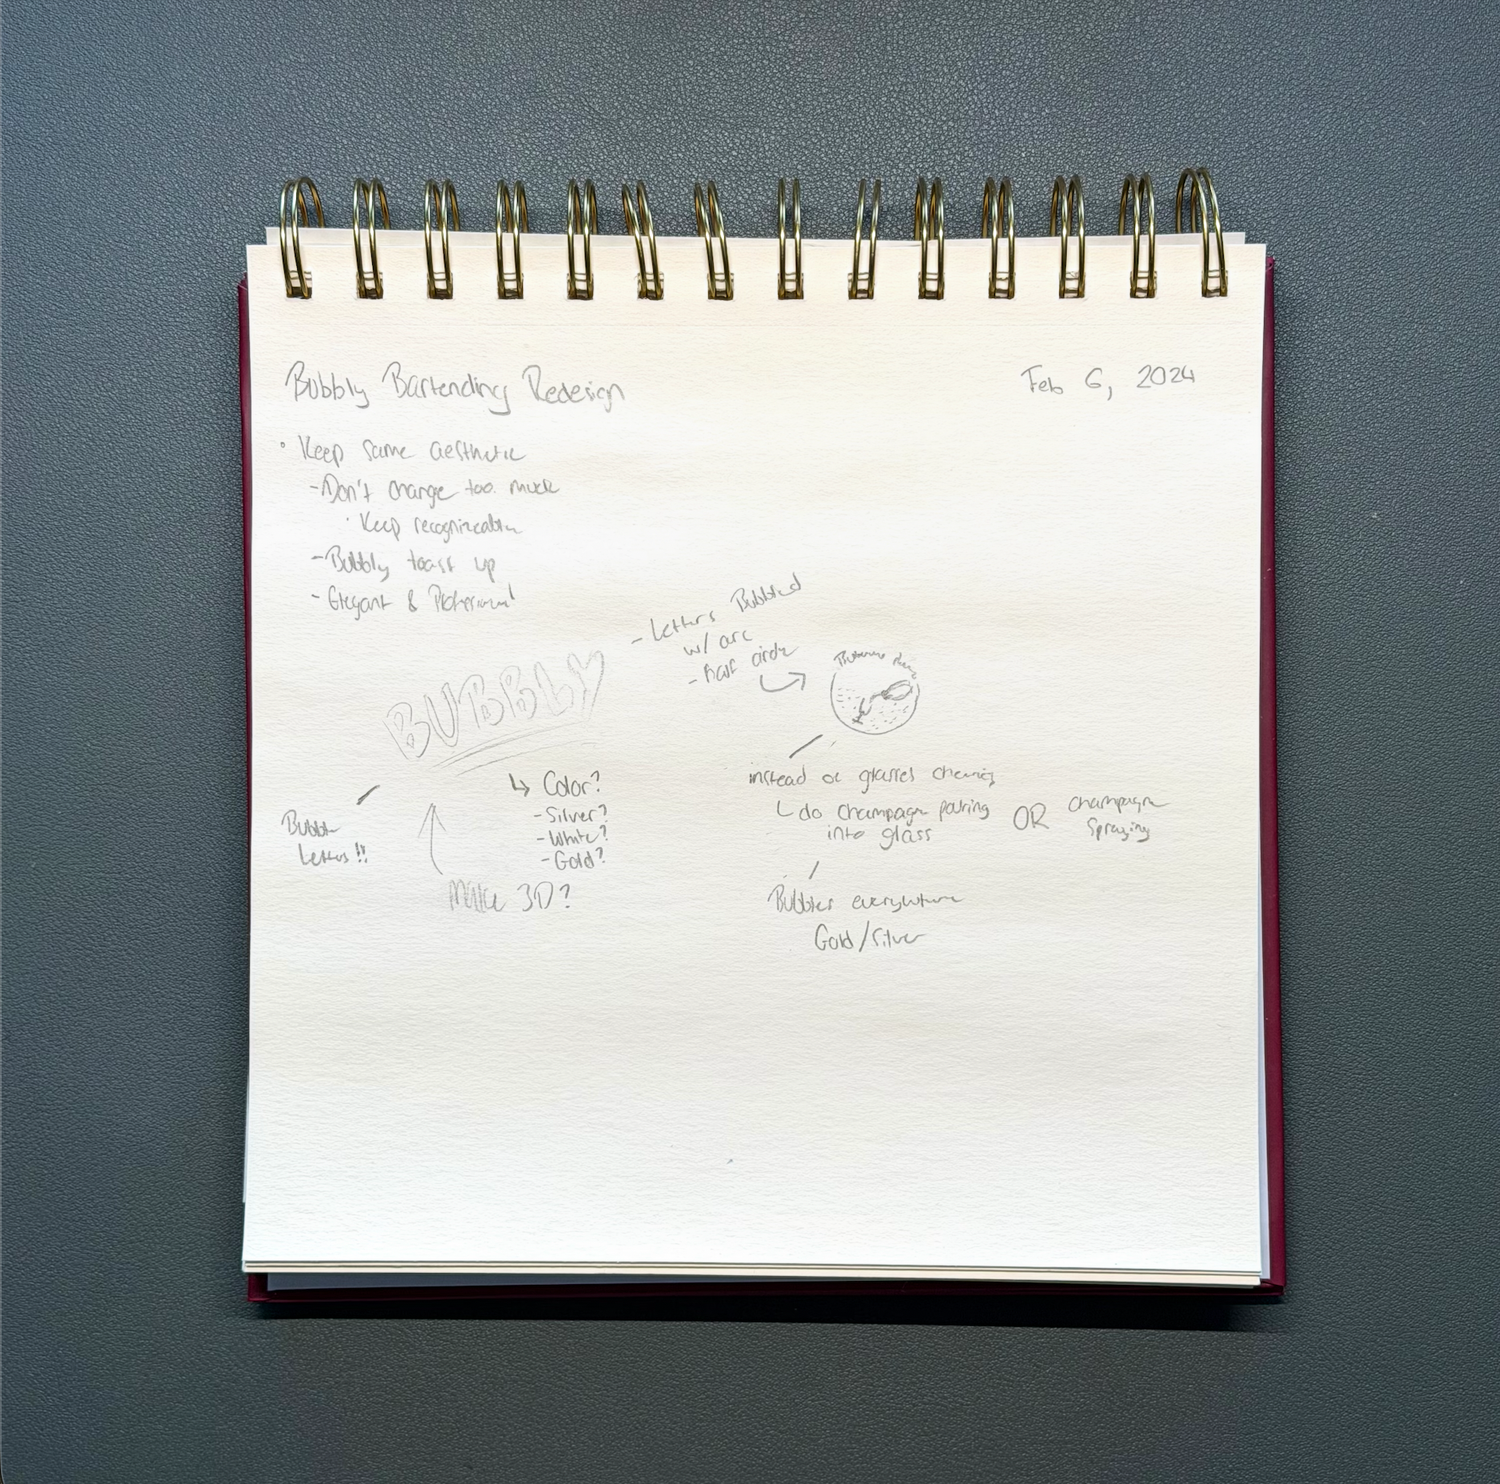 Bubbly Bartending Redesign
Feb 6, 2024
• Keep same aesthetic
- Don't change too much
• Keep recognizable
- Bubbly toast up
- Elegant & Professional
- Letters Bubbled
w/ arc
- Half circle
BUBBLY
Bubble
Letters!!
Color?
- Silver?
- White?
- Gold?
Make 3D?
instead of glasses cheering
do champagne pouring
into glass
OR
champagne
Spraying
Bubbles everywhere
Gold/Silver